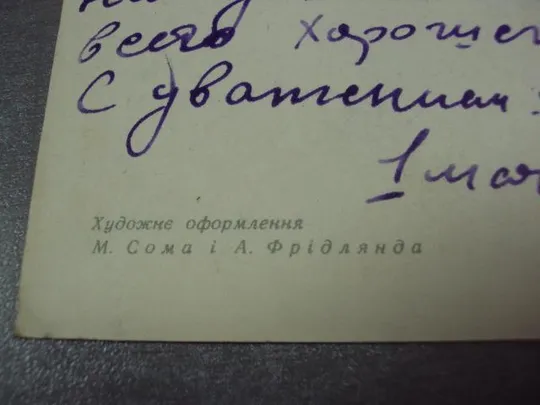 всего хороше
С уважением
1 мая
Художнє оформлення
М. Сома і А. Фрідлянда